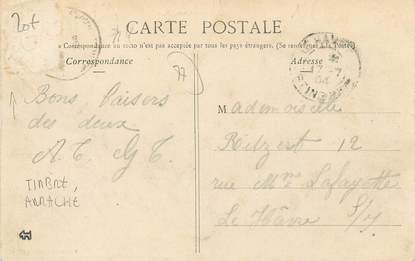 20f
CARTE POSTALE
La Correspondance au recto n'est pas acceptée par tous les pays étrangers. (Se renseigner à la Poste)
Correspondance
Adresse
77
Bons baisers
des deux
A. C. G C.
TIMBRE
ARRACHÉ
Mademoiselle
12
rue Mme Lafayette
Le Hâvre S/I